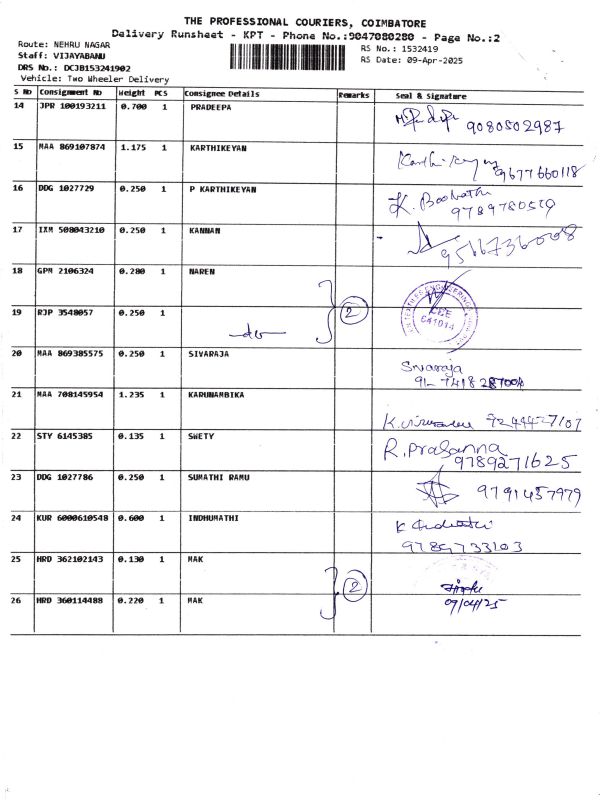 THE PROFESSIONAL COURIERS, COIMBATORE
Delivery Runsheet - KPT - Phone No.:9047080280 - Page No.:2
Route: NEHRU NAGAR
Staff: VIJAYABANU
DRS No.: DCJB153241902
Vehicle: Two Wheeler Delivery
RS No.: 1532419
RS Date: 09-Apr-2025
S No Consignment No Weight PCS Consignee Details Remarks Seal & Signature
14 JPR 100193211 0.700 1 PRADEEPA 9080502987
15 MAA 869107874 1.175 1 KARTHIKEYAN 9677660118
16 DDG 1027729 0.250 1 P KARTHIKEYAN K. Boobathi
9789780519
17 IXM 508043210 0.250 1 KANNAN 9566736008
18 GPM 2106324 0.280 1 NAREN
19 RJP 3548057 0.250 1 2 641014
20 MAA 869385575 0.250 1 SIVARAJA Sivaraja
21 MAA 708145954 1.235 1 KARUNAMBIKA 9244427107
22 STY 6145385 0.135 1 SWETY R. Prasanna
9789271625
23 DDG 1027786 0.250 1 SUMATHI RAMU 9791457979
24 KUR 6000610548 0.600 1 INDHUMATHI
9789733103
25 HRD 362102143 0.130 1 MAK
26 HRD 360114488 0.220 1 MAK 2 09/04/25